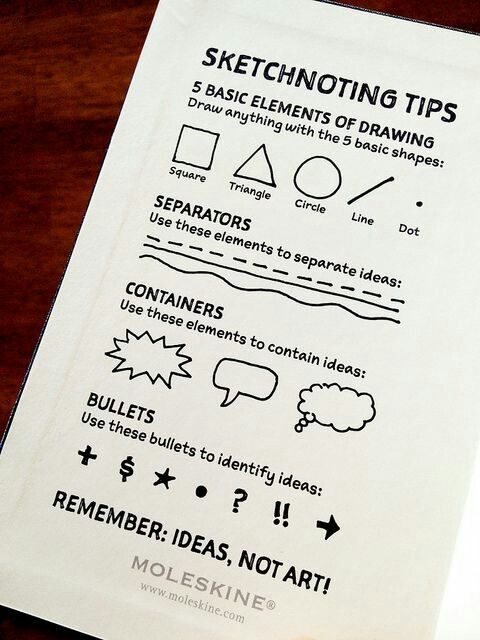 SKETCHNOTING TIPS
5 BASIC ELEMENTS OF DRAWING
Draw anything with the 5 basic shapes:
Square Triangle Circle Line Dot
SEPARATORS
Use these elements to separate ideas:
CONTAINERS
Use these elements to contain ideas:
BULLETS
Use these bullets to identify ideas:
+ $ ★ • ? !! →
REMEMBER: IDEAS, NOT ART!
MOLESKINE®
www.moleskine.com